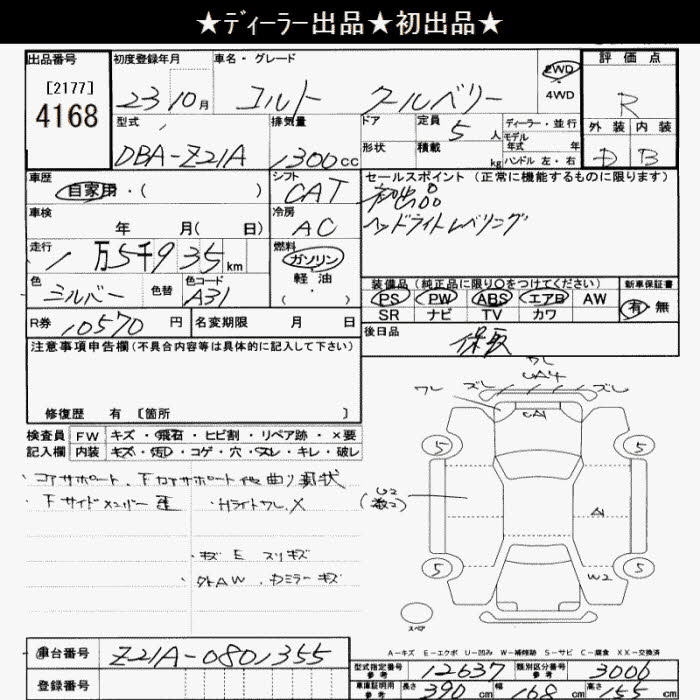 ★ディーラー出品★初出品★
出品番号 初度登録年月 車名・グレード
[2177]
4168
23 10月 コルト クールベリー
2WD
4WD
評価点
R
外装 内装
D B
型式 排気量 ドア 定員 5人 ディーラー・並行
モデル年式 年
形状 積載 kg ハンドル 左・右
DBA-Z21A 1300cc
車歴 シフト セールスポイント (正常に機能するものに限ります)
自家用・( ) CAT 初出品
車検 冷房 ヘッドライトレベリング
年 月( 日) AC
走行 燃料
1万5千935km ガソリン
軽油
( ・ )
色 色替 色コード
シルバー A31
装備品 (純正品に限り○をつけてください) 新車保証書
PS PW ABS エアB AW 有・無
SR ナビ TV カワ
R券 10570円 名変期限 月 日 後日品
保取
注意事項申告欄(不具合内容等は具体的に記入して下さい)
修復歴 有 〔箇所 〕
検査員 FW キズ・飛石・ヒビ割・リペア跡・×要
記入欄 内装 キズ・汚レ・コゲ・穴・スレ・キレ・破レ
・コアサポート、下コアサポート他曲り現状
・下サイドメンバー
・Hライトワレ、X
・キズ E スリキズ
・外AW、カミラーキズ
ワレ
ワレ ズレ UA4 ズレ
UA1
5 5
U2
A1
5 5
W2
スペア
A-キズ E-エクボ U-凹み W-補修跡 S-サビ C-腐食 XX-交換済
車台番号 Z21A-0801355
登録番号
型式指定番号 参考 12637 類別区分番号 参考 3006
車庫証明用 参考 長さ 390cm 幅 168cm 高さ 155cm